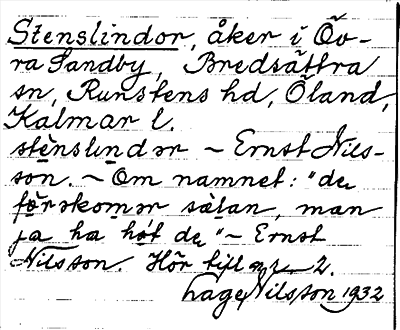 Stenslindor, åker i Öv-
ra Sandby, Bredsättra
sn, Runstens hd, Öland,
Kalmar l.
stènslındər ~ Ernst Nils-
son. ~ Om namnet: "de
fərəkomər sàtan, man
ja ha hǿt de" ~ Ernst
Nilsson. Hör till 2.
Lage Nilsson 1932